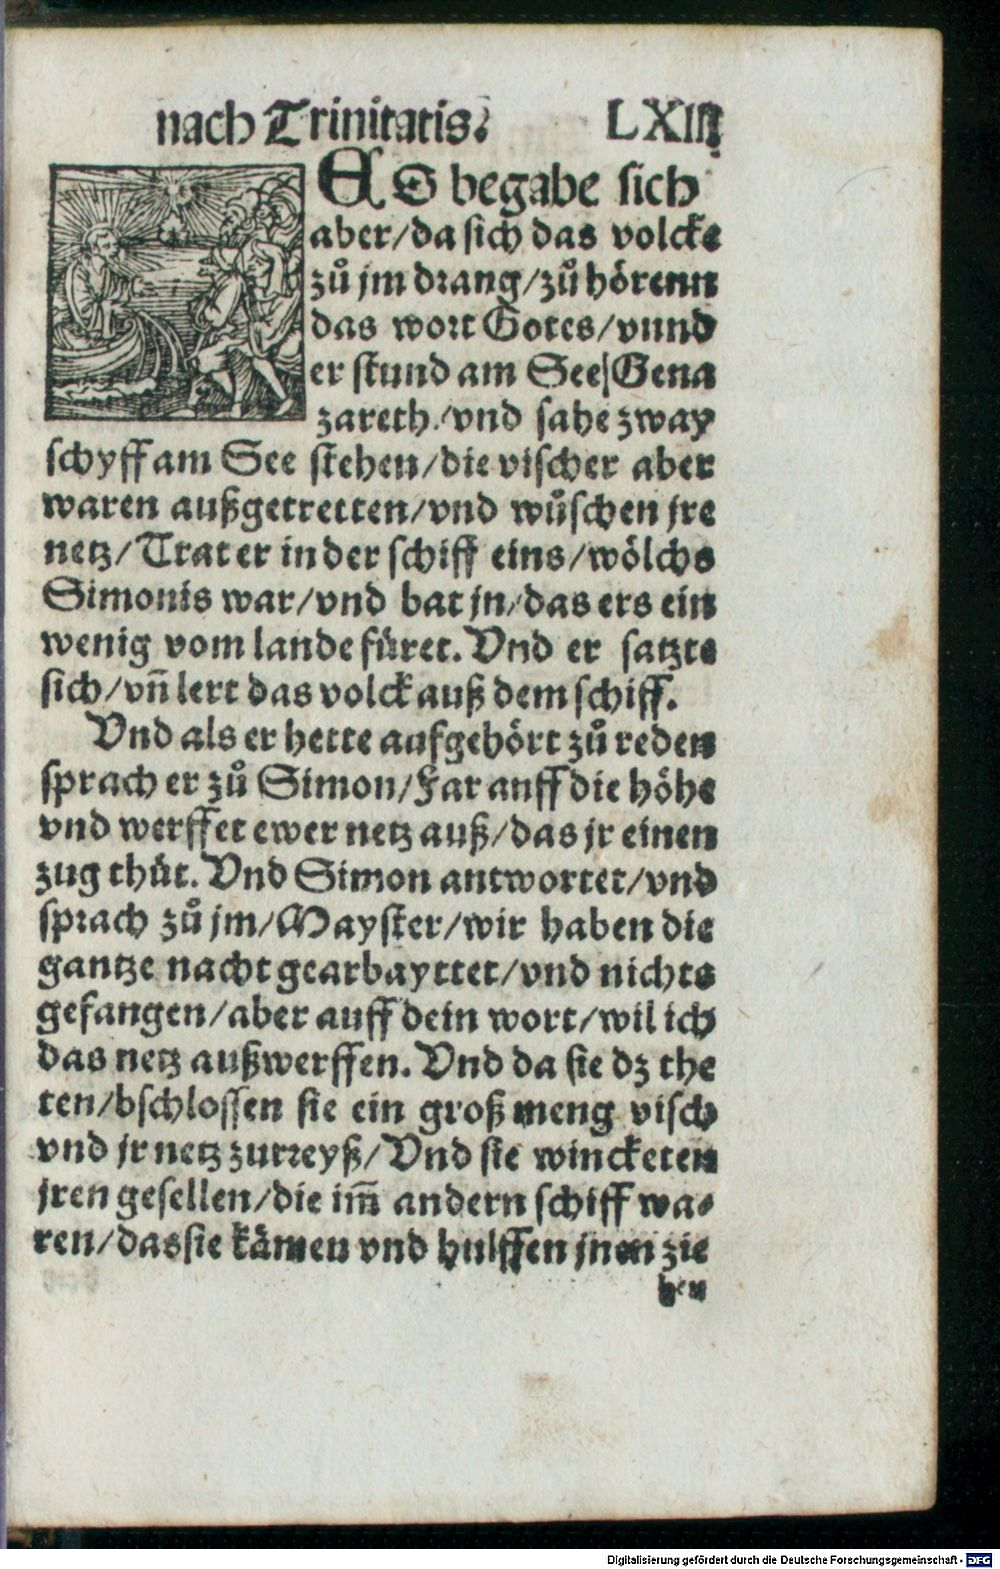 nach Trinitatis. LXIII
ES begabe sich
aber/da sich das volcke
zuͦ jm drang/zuͦ hörenn
das wort Gotes/vnnd
er stund am See/Gena
zareth/vnd sahe zway
schyff am See stehen/die vischer aber
waren außgetretten/vnd wuͦschen jre
netz/Trat er in der schiff eins/wölchs
Simonis war/vnd bat jn/das ers ein
wenig vom lande füret. Vnd er satzte
sich/vñ lert das volck auß dem schiff.
Vnd als er hette aufgehört zuͦ reden
sprach er zuͦ Simon/Far auff die höhe
vnd werffet ewer netz auß/das jr einen
zug thüt. Vnd Simon antwortet/vnd
sprach zuͦ jm/Mayster/wir haben die
gantze nacht gearbayttet/vnd nichts
gefangen/aber auff dein wort/wil ich
das netz außwerffen. Vnd da sie dz the
ten/bschlossen sie ein groß meng visch
vnd jr netz zurreyß/Vnd sie wincketen
jren gesellen/die im̃ andern schiff wa⸗
ren/das sie kämen vnd hulffen jnen zie
hen
Digitalisierung gefördert durch die Deutsche Forschungsgemeinschaft - DFG